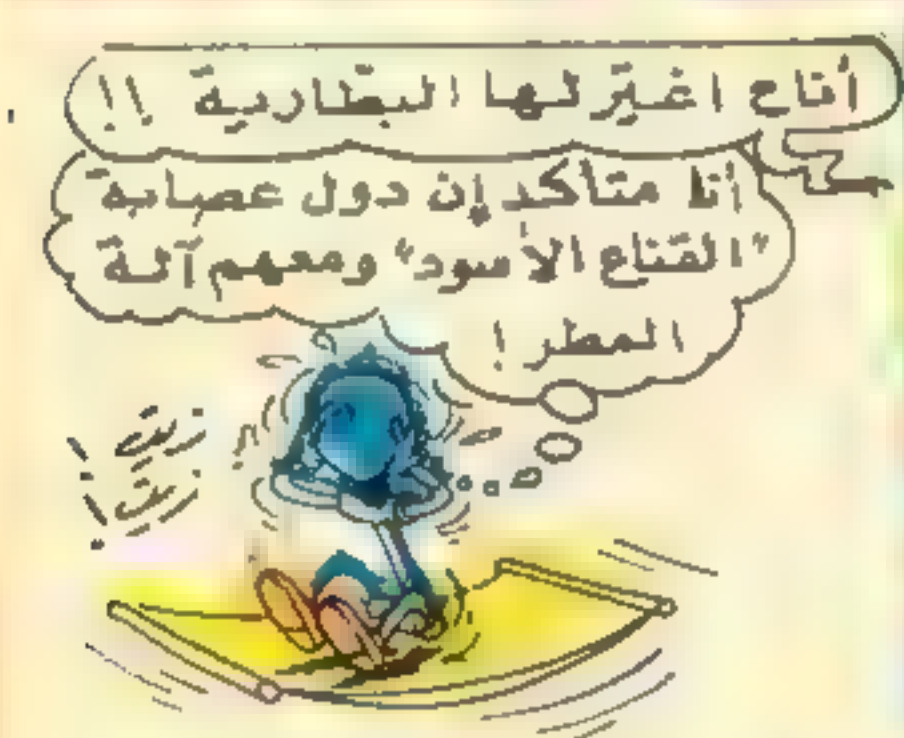 أناح اغيّر لها البطارية !!
أنا متأكد إن دول عصابة
"القناع الأسود" ومعهم آلة
المطر !
زيت !
زيت !